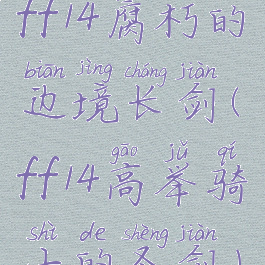 ff14腐朽的
biān jìng cháng jiàn
边境长剑(
gāo jǔ qí
ff14高举骑
shì de shèng jiàn
士的圣剑)